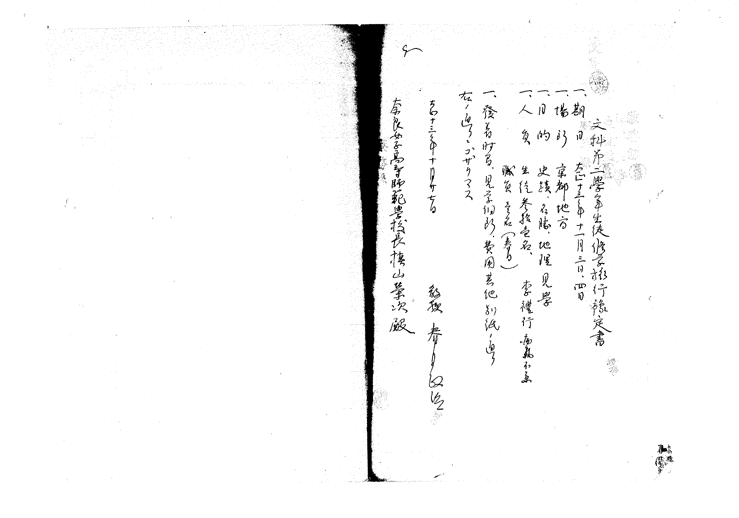 文科第二學年生徒修学旅行豫定書
一、期日 大正十三年十一月三日、四日
一、場所 京都地方
一、目的 史蹟、名勝、地理見学
一、人員 生徒参拾壱名、李禮行病氣不参
職員 壱名(春日)
一、發着時日、見学個所、費用其他別紙ノ通リ
右ノ通リニゴザリマス
大正十三年十月廿七日
教授 春日政治
奈良女子高等師範學校長 槙山榮次殿